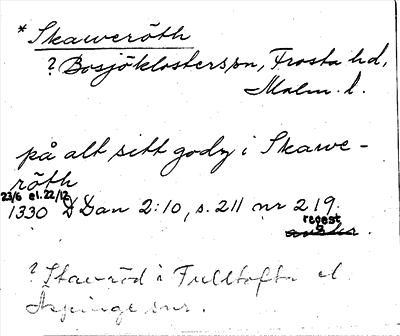 *Skaweröth
? Bosjöklosters sn, Frosta hd,
Malm. l.
på alt sitt godz i Skawe-
röth
23/6 el. 22/12
1330 DDan 2:10, s. 211 nr 219.
regest
? Stavröd i Fulltofta el.
Äspinge snr.